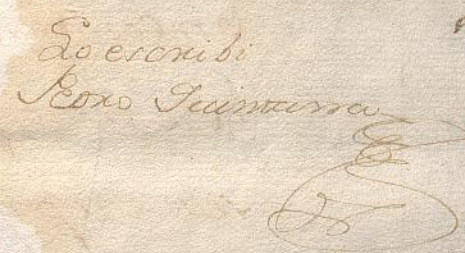 Lo escribi
Pedro Quintana